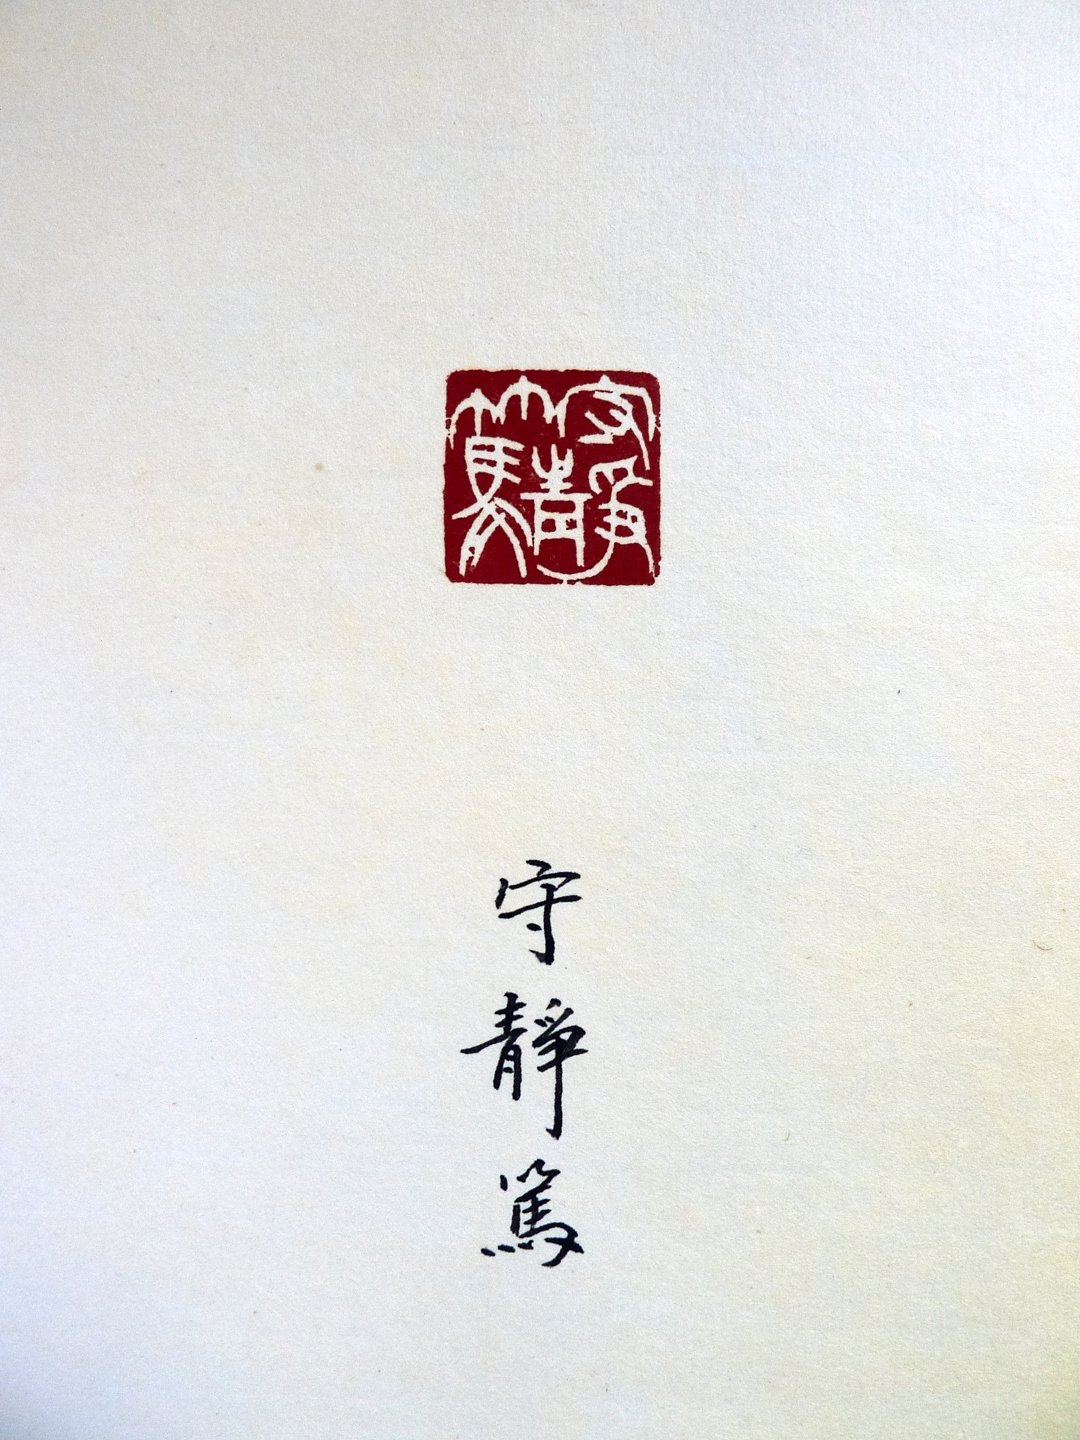 守靜篤
守靜篤